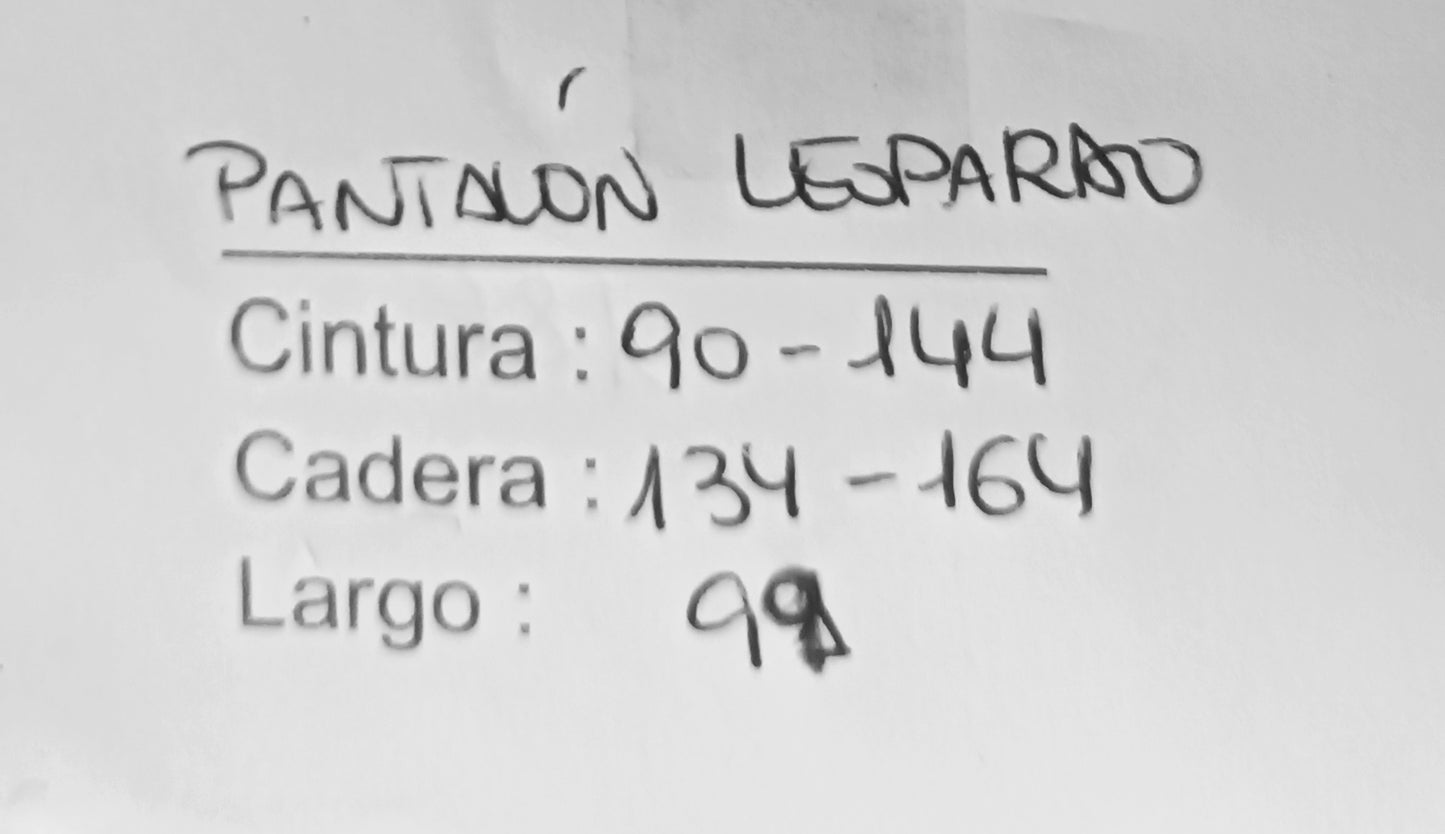 PANTALÓN LEOPARDO
Cintura : 90 - 144
Cadera : 134 - 164
Largo :